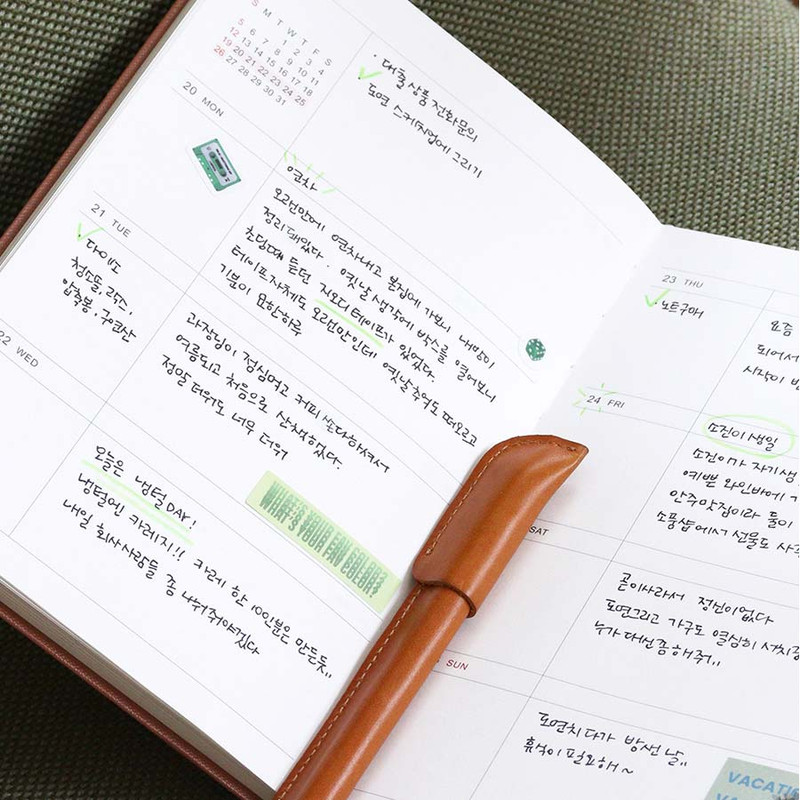 S M T W T F S
1 2 3 4
5 6 7 8 9 10 11
12 13 14 15 16 17 18
19 20 21 22 23 24 25
26 27 28 29 30 31
· 대출상품 전화문의
도면 스케치업에 그리기
20 MON
연차
오랜만에 연차내고 본집에 가보니 내방이
정리돼있다. 옛날 생각에 박스를 열어보니
초딩때 듣던 지오디 테이프가 있었다.
테이프자체도 오랜만인데 옛날추억도 떠오르고
기분이 묘한하루
21 TUE
· 다이소
청소솔, 락스,
압축봉, 구연산
과장님이 점심먹고 커피 쏜다하셔서
여름되고 처음으로 산책했다.
정말 더워도 너무 더워
22 WED
오늘은 냉털 DAY!
냉털엔 카레지!! 카레 한 10인분은 만든듯..
내일 회사사람들 좀 나눠줘야겠다
WHAT'S YOUR FAV COLOR?
WHAT'S YOUR FAV COLOR?
23 THU
· 노트구매
요즘
되어서
시작이
24 FRI
소진이 생일
소진이가 자기생
예쁜 와인바에
안주맛집이라 둘이
소품샵에서 선물도 사
SAT
곧이사라서 정신이없다
도면그리고 가구도 열심히 서치
누가 대신좀해줘..
SUN
도면치다가 밤샌날..
휴식이필요해~
VACATI